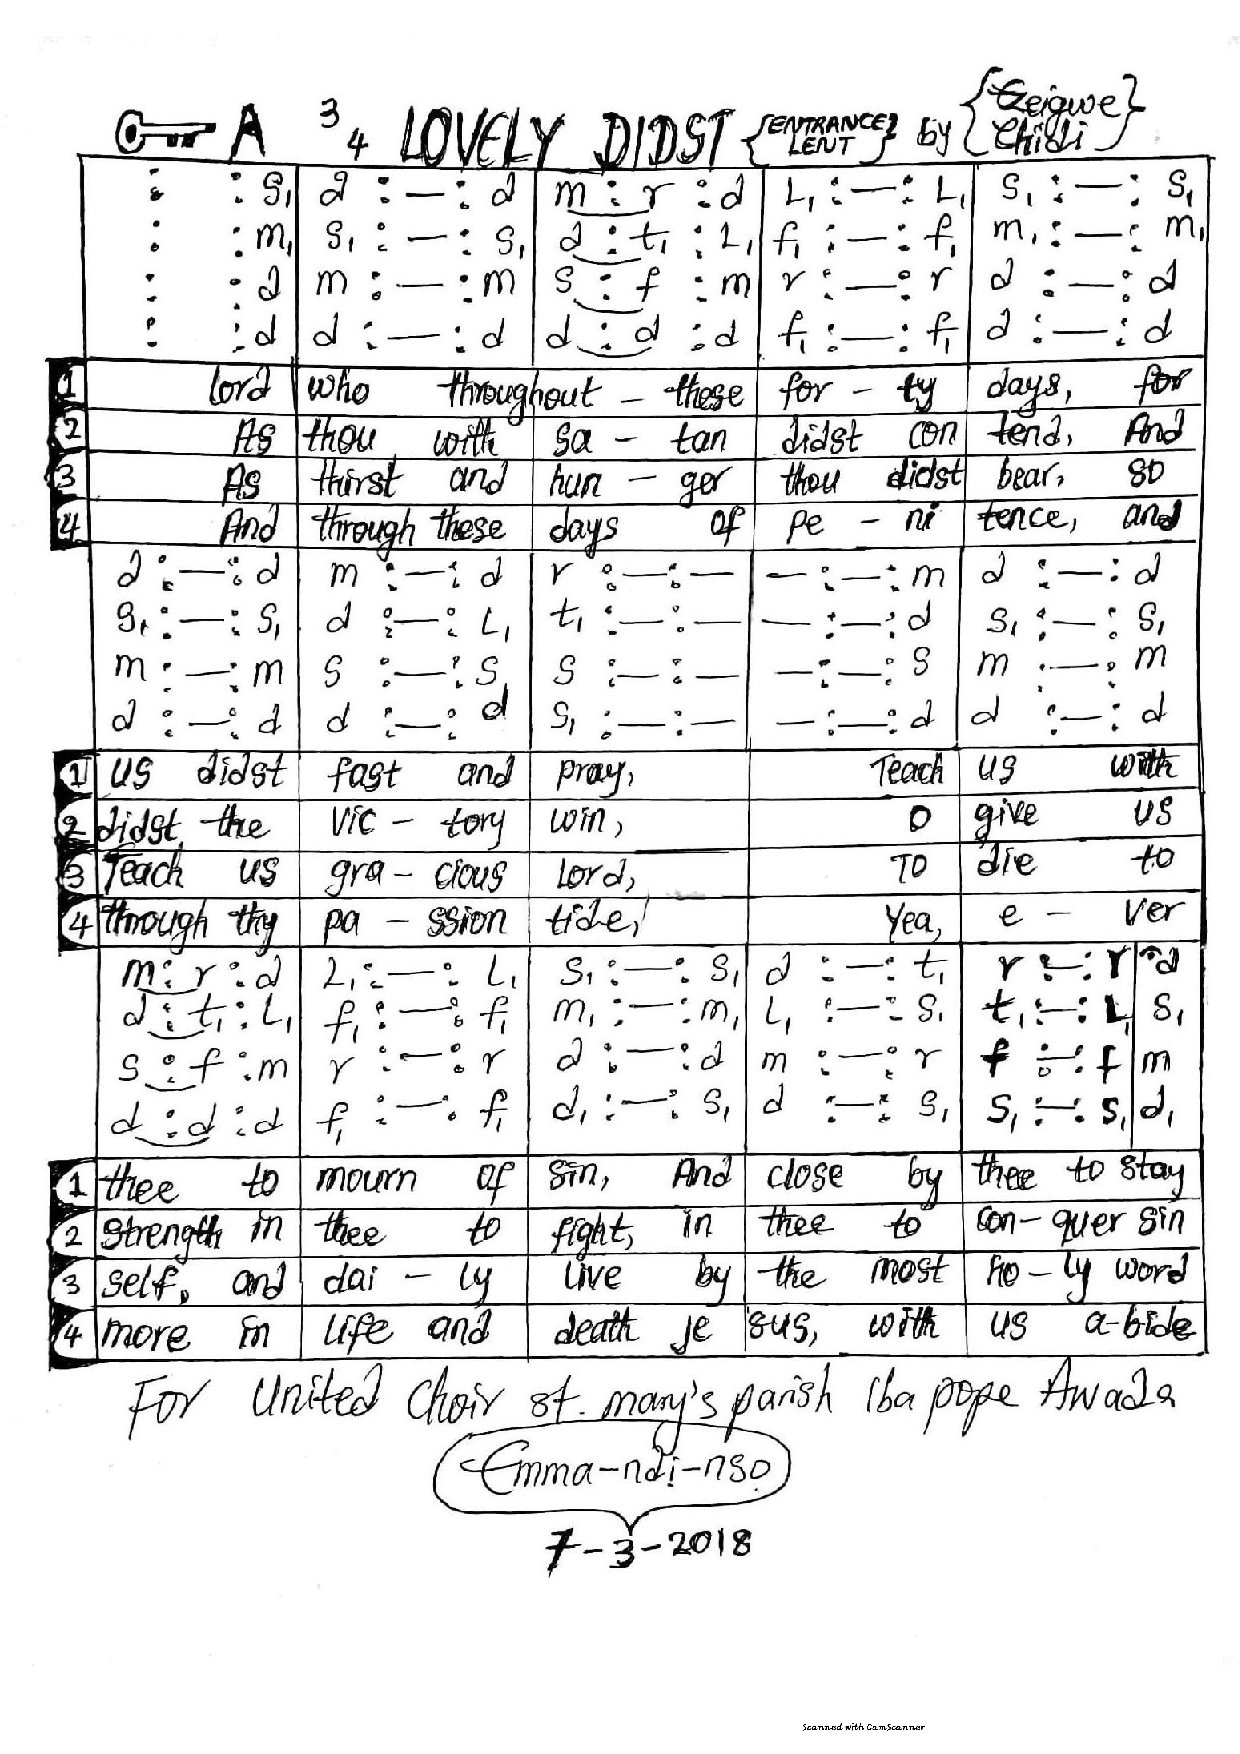 A 3/4 LOVELY DIDST {ENTRANCE LENT} by {Ezeigwe Chidi}
: : s₁ | d : — : d | m : r : d | L₁ : — : L₁ | s₁ : — : s₁
: : m₁ | s₁ : — : s₁ | d : t₁ : L₁ | f₁ : — : f₁ | m₁ : — : m₁
: : d | m : — : m | s : f : m | r : — : r | d : — : d
: : d | d : — : d | d : d : d | f₁ : — : f₁ | d : — : d
1 Lord | who throughout – these | for – ty | days, for
2 As | thou with | sa – tan | didst con | tend, And
3 As | thirst and | hun – ger | thou didst | bear, so
4 And | through these | days of | pe – ni | tence, and
d : — : d | m : — : d | r : — : — | — : — : m | d : — : d
s₁ : — : s₁ | d : — : L₁ | t₁ : — : — | — : — : d | s₁ : — : s₁
m : — : m | s : — : s | s : — : — | — : — : s | m : — : m
d : — : d | d : — : d | s₁ : — : — | — : — : d | d : — : d
1 us didst | fast and | pray, | Teach | us with
2 didst the | vic – tory | win, | O | give us
3 Teach us | gra – cious | Lord, | TO | die to
4 through thy | pa – ssion | tide, | Yea, | e – ver
m : r : d | L₁ : — : L₁ | s₁ : — : s₁ | d : — : t₁ | r : — : r | d
d : t₁ : L₁ | f₁ : — : f₁ | m₁ : — : m₁ | L₁ : — : s₁ | t₁ : — : L₁ | s₁
s : f : m | r : — : r | d : — : d | m : — : r | f : — : f | m
d : d : d | f₁ : — : f₁ | d₁ : — : s₁ | d : — : s₁ | s₁ : — : s₁ | d₁
1 thee to | mourn of | sin, And | close by | thee to stay
2 strength in | thee to | fight, in | thee to | con– quer sin
3 self, and | dai – ly | live by | the most | ho – ly word
4 more in | life and | death je | sus, with | us a-bide
For United Choir st. mary's parish Iba pope Awada
Emma-ndi-nso
7-3-2018
Scanned with CamScanner